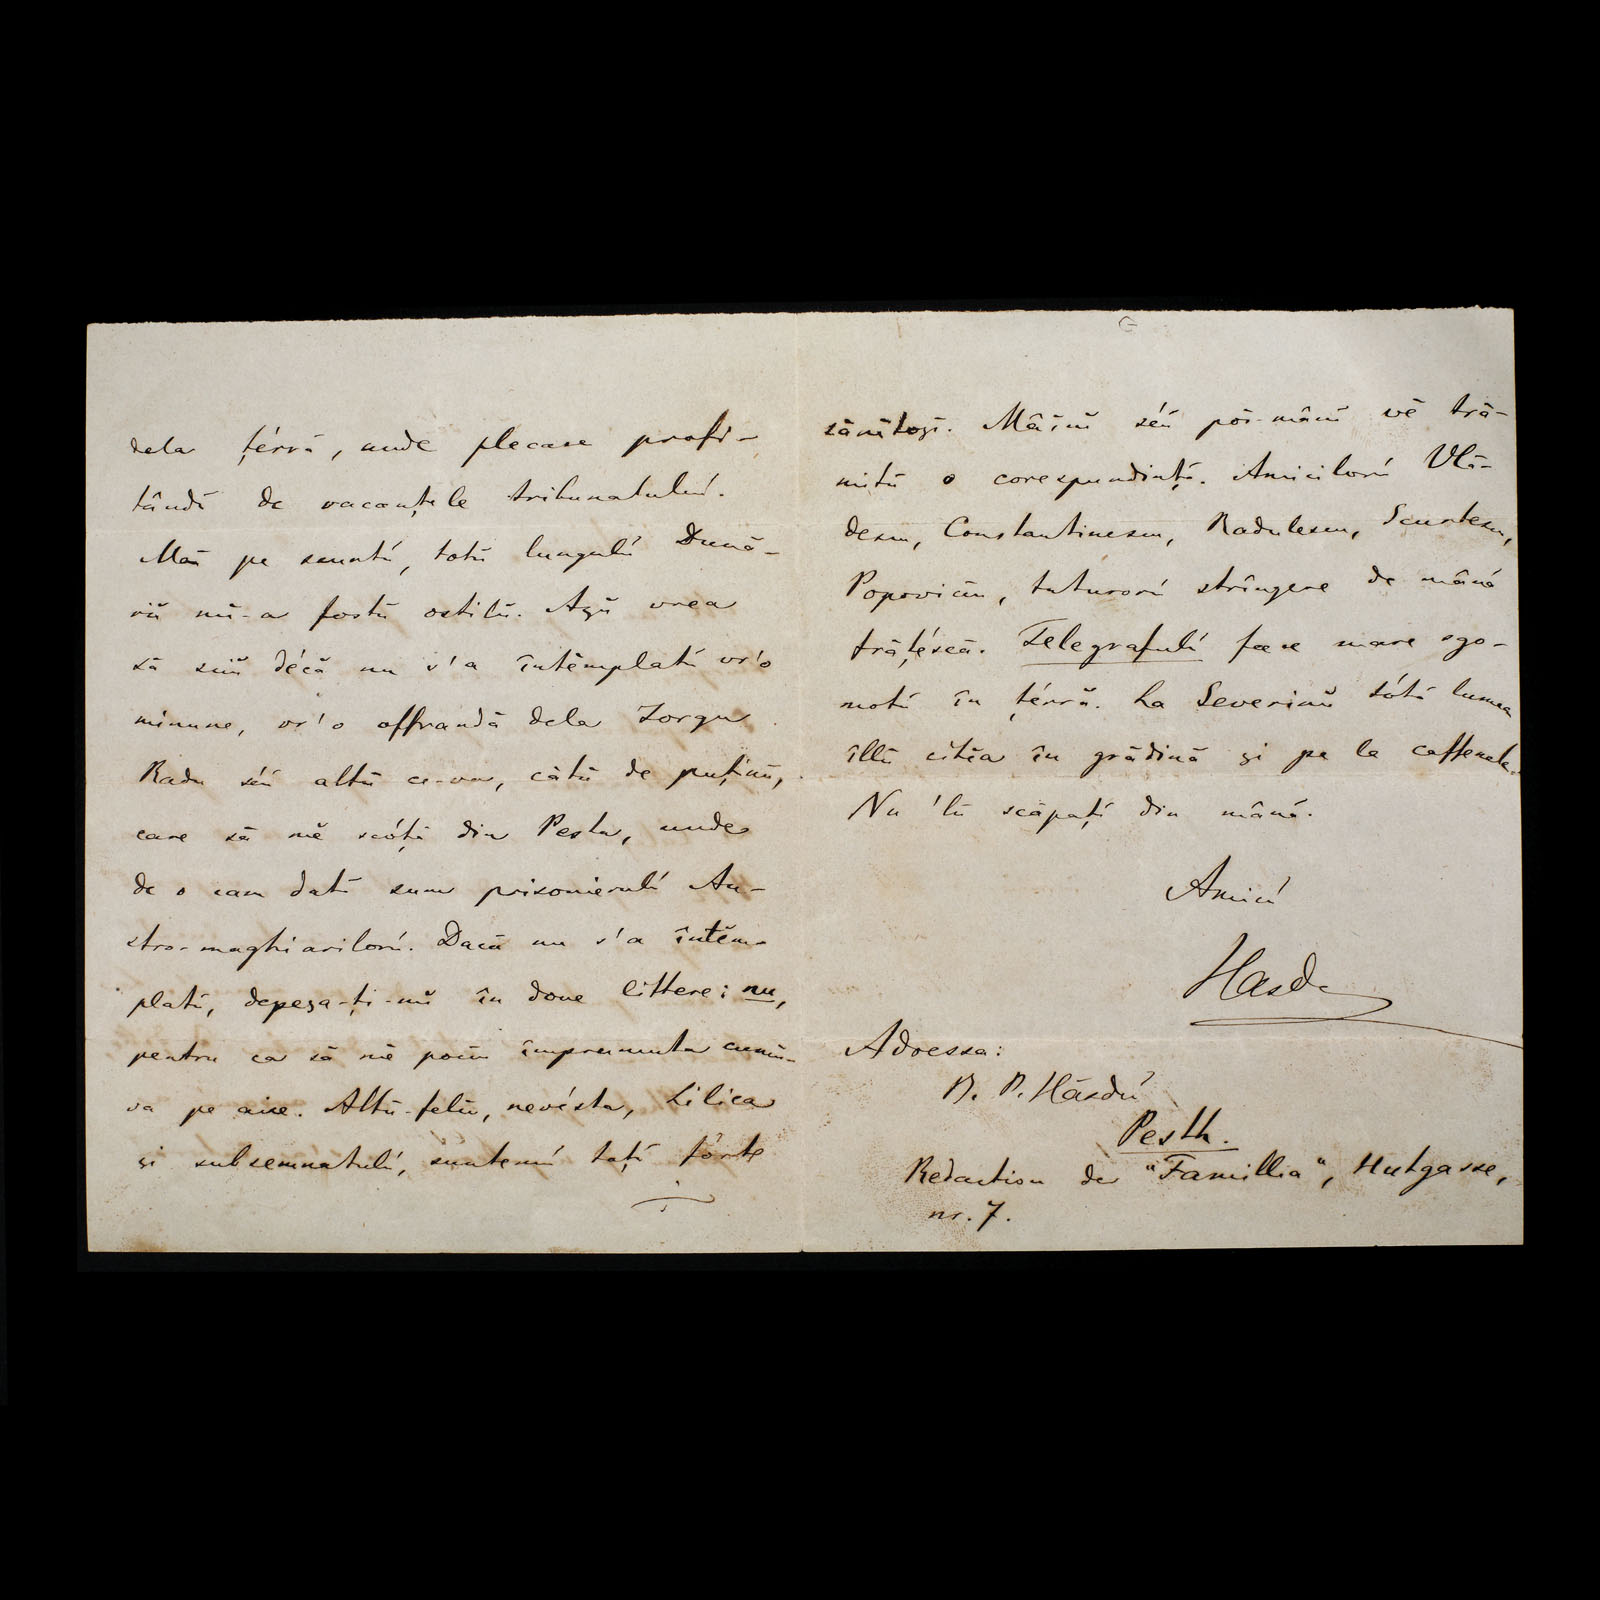 dela țérră, unde plecase profi-
tândŭ de vacanțele tribunalului.
Mai pe scurtŭ, totŭ lungulŭ Dună-
rii mi-a fostŭ ostilŭ. Așĭ vrea
să sciŭ décă nu s'a întêmplatŭ vr'o
minune, vr'o offrandă dela Iorgu
Radu séŭ altŭ ce-va, câtŭ de puținŭ,
care să mĕ scóță din Pesta, unde
de o cam dată sum prisonierulŭ Au-
stro-maghiarilorŭ. Dacă nu s'a întêm-
platŭ, depeșa-ți-mĭ în doue littere: nu,
pentru ca să mĕ pociŭ împrumuta cumŭ-
va pe aice. Altŭ-felŭ, nevésta, Lilica
și subsemnatulŭ, suntemŭ toți fórte
sănĕtoși. Mâine séŭ poi-mâne vĕ tră-
mitŭ o corespundință. Amicilorŭ Vlă-
descu, Constantinescu, Radulescu, Scurtescu,
Popoviciŭ, tuturorŭ strîngere de mână
frățéscă. Telegrafulŭ face mare sgo-
motŭ în țérră. La Severinŭ tótă lumea
îllŭ citia în grădină și pe la caffenele.
Nu 'lŭ scăpați din mână.
Amicŭ
Hasdeu
Adressa:
B. P. Hăsdŭ
Pesth.
Redaction der "Famillia", Hutgasse,
nr. 7.